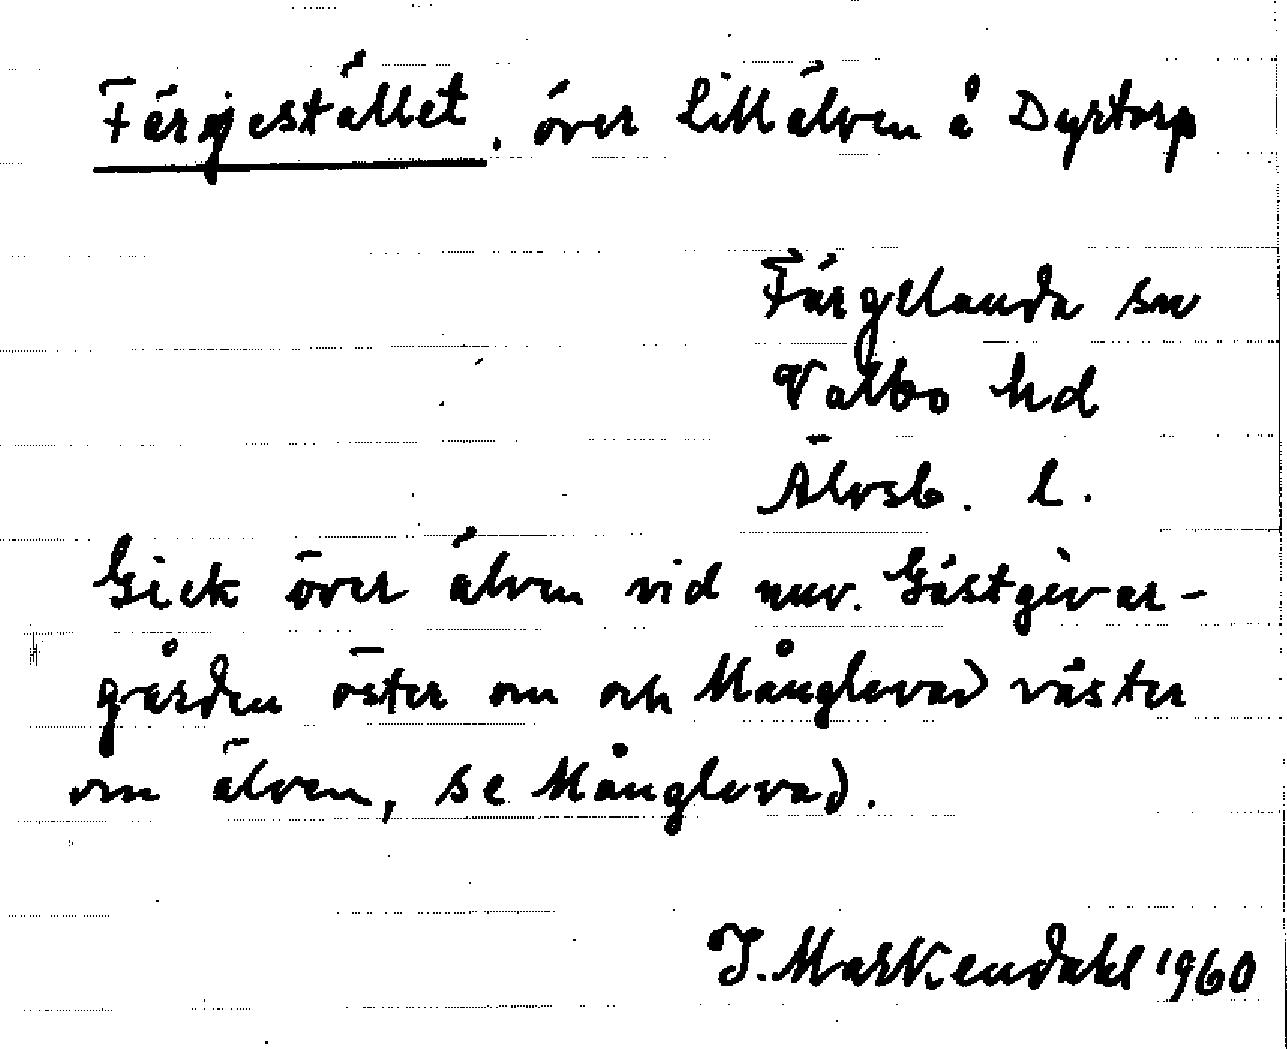 Färjestället, över Lillälven å Dyrtorp
Färgelanda sn
Valbo hd
Älvsb. l.
Gick över älven vid nuv. Gästgivar-
gården öster om och Månglevad väster
om älven, se Månglevad.
J. Markendahl 1960